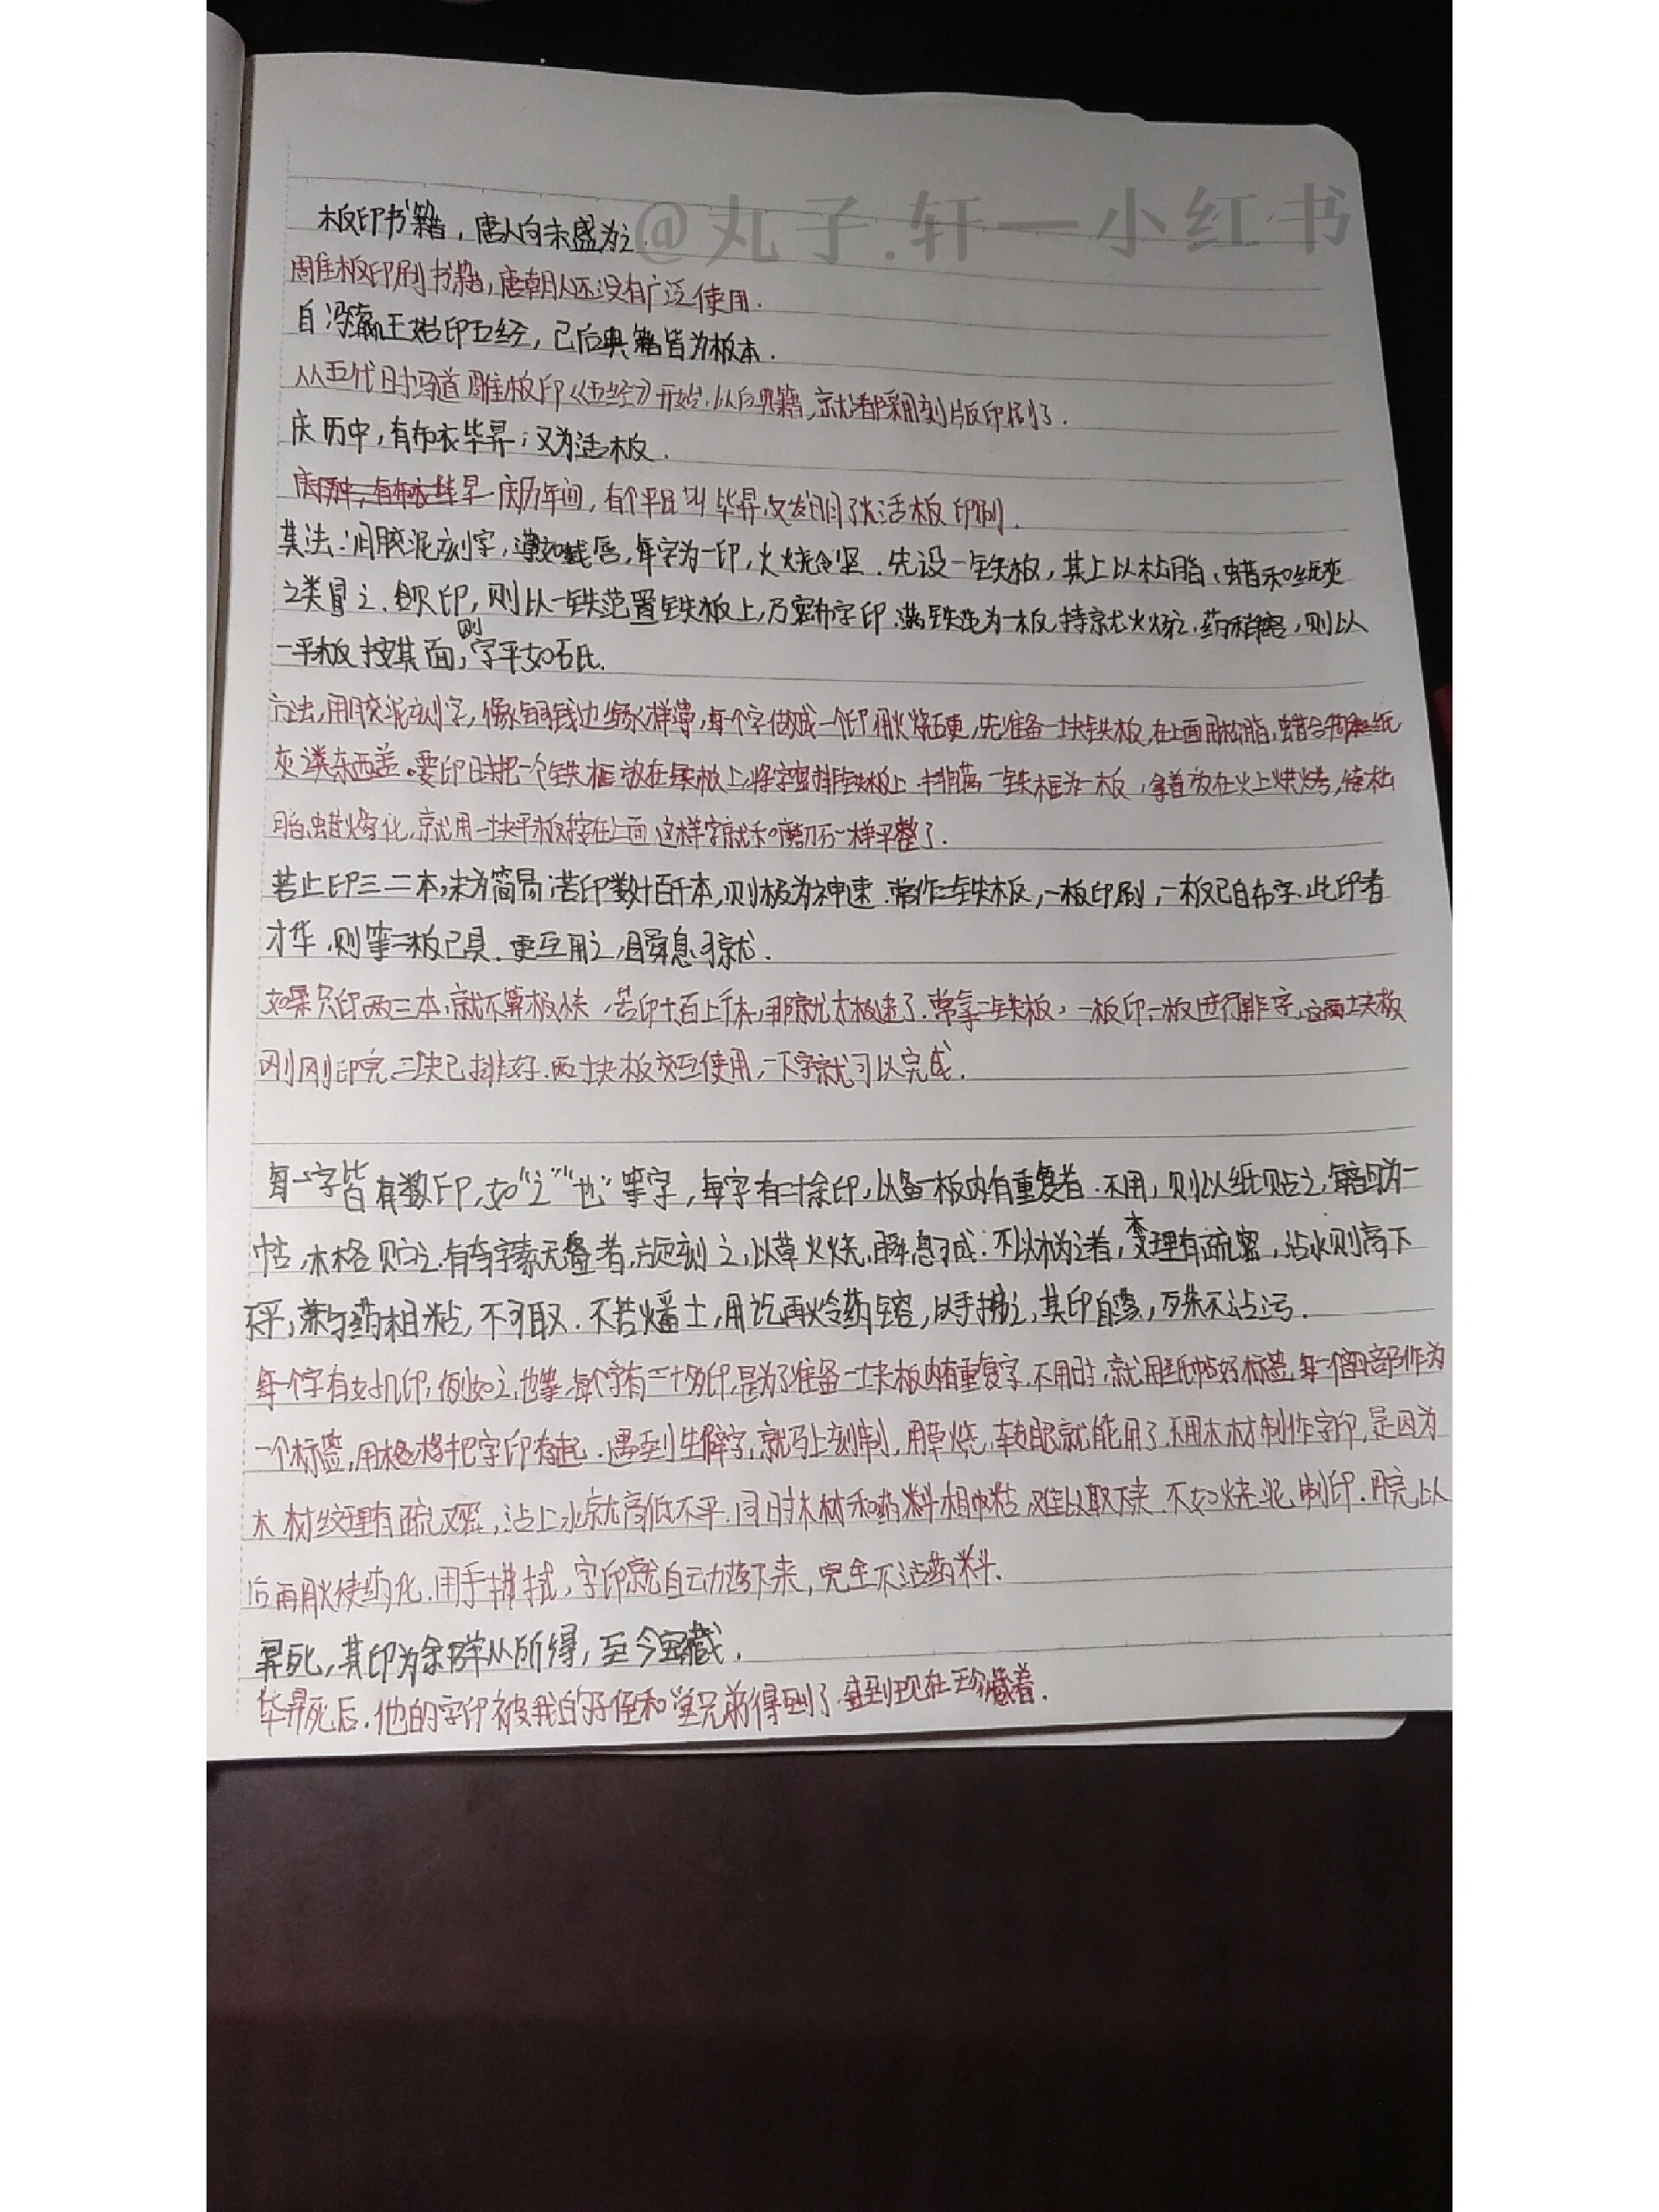 @丸子.轩一小红书
板印书籍，唐人尚未盛为之.
雕板印刷书籍，唐朝人还没有广泛使用.
自冯瀛王始印五经，已后典籍皆为板本.
从五代时冯道雕板印《五经》开始，以后典籍，就都采用刻版印刷了.
庆历中，有布衣毕昇，又为活板.
庆历中，有布衣毕昇 庆历年间，有个平民叫毕昇，又发明了活板印刷.
其法：用胶泥刻字，薄如钱唇，每字为一印，火烧令坚.先设一铁板，其上以松脂、蜡和纸灰
之类冒之.欲印，则以一铁范置铁板上，乃密布字印.满铁范为一板，持就火炀之.药稍熔，则以
一平板按其面，则字平如砥.
方法，用胶泥刻字，像铜钱边缘一样薄，每个字做成一个印，用火烧硬，先准备一块铁板，在上面用松脂、蜡合纸
灰一类东西盖.要印时把一个铁框放在铁板上，将字密排铁板上.排满一铁框为一板，拿着放在火上烘烤，待松
脂、蜡熔化，就用一块平板按在上面 这样字就和磨刀石一样平整了.
若止印三二本，未为简易；若印数十百千本，则极为神速.常作二铁板，一板印刷，一板已自布字.此印者
才毕，则第二板已具.更互用之，瞬息可就.
如果只印两三本，就不算极快，若印十百上千本，那就太极速了.常拿二铁板，一板印，一板进行排字，这两块板
刚刚印完，二块已排好.两块板交互使用，一下字就可以完成.
每一字皆有数印，如“之”“也”等字，每字有二十余印，以备一板内有重复者.不用，则以纸贴之，每韵为一
帖，木格贮之.有奇字素无备者，旋刻之，以草火烧，瞬息可成.不以木为之者，木理有疏密，沾水则高下
不平，兼与药相粘，不可取.不若燔土，用讫再火令药熔，以手拂之，其印自落，殊不沾污.
每个字有好几印，例如之、也等，每个字有二十多印，是为了准备一块板内有重复字.不用时，就用纸帖好标签，每一个韵部作为
一个标签，用木格把字印存起.遇到生僻字，就马上刻制，用草烧，转眼就能用了.不用木材制作字印，是因为
木材纹理有疏又密，沾上水就高低不平.同时木材和药料相粘，难以取下来.不如烧泥制印.用完以
后再用火使药化.用手拂拭，字印就自动落下来，完全不沾药料.
昇死，其印为余群从所得，至今宝藏.
毕昇死后.他的字印被我的子侄和堂兄弟得到了，直到现在珍藏着.